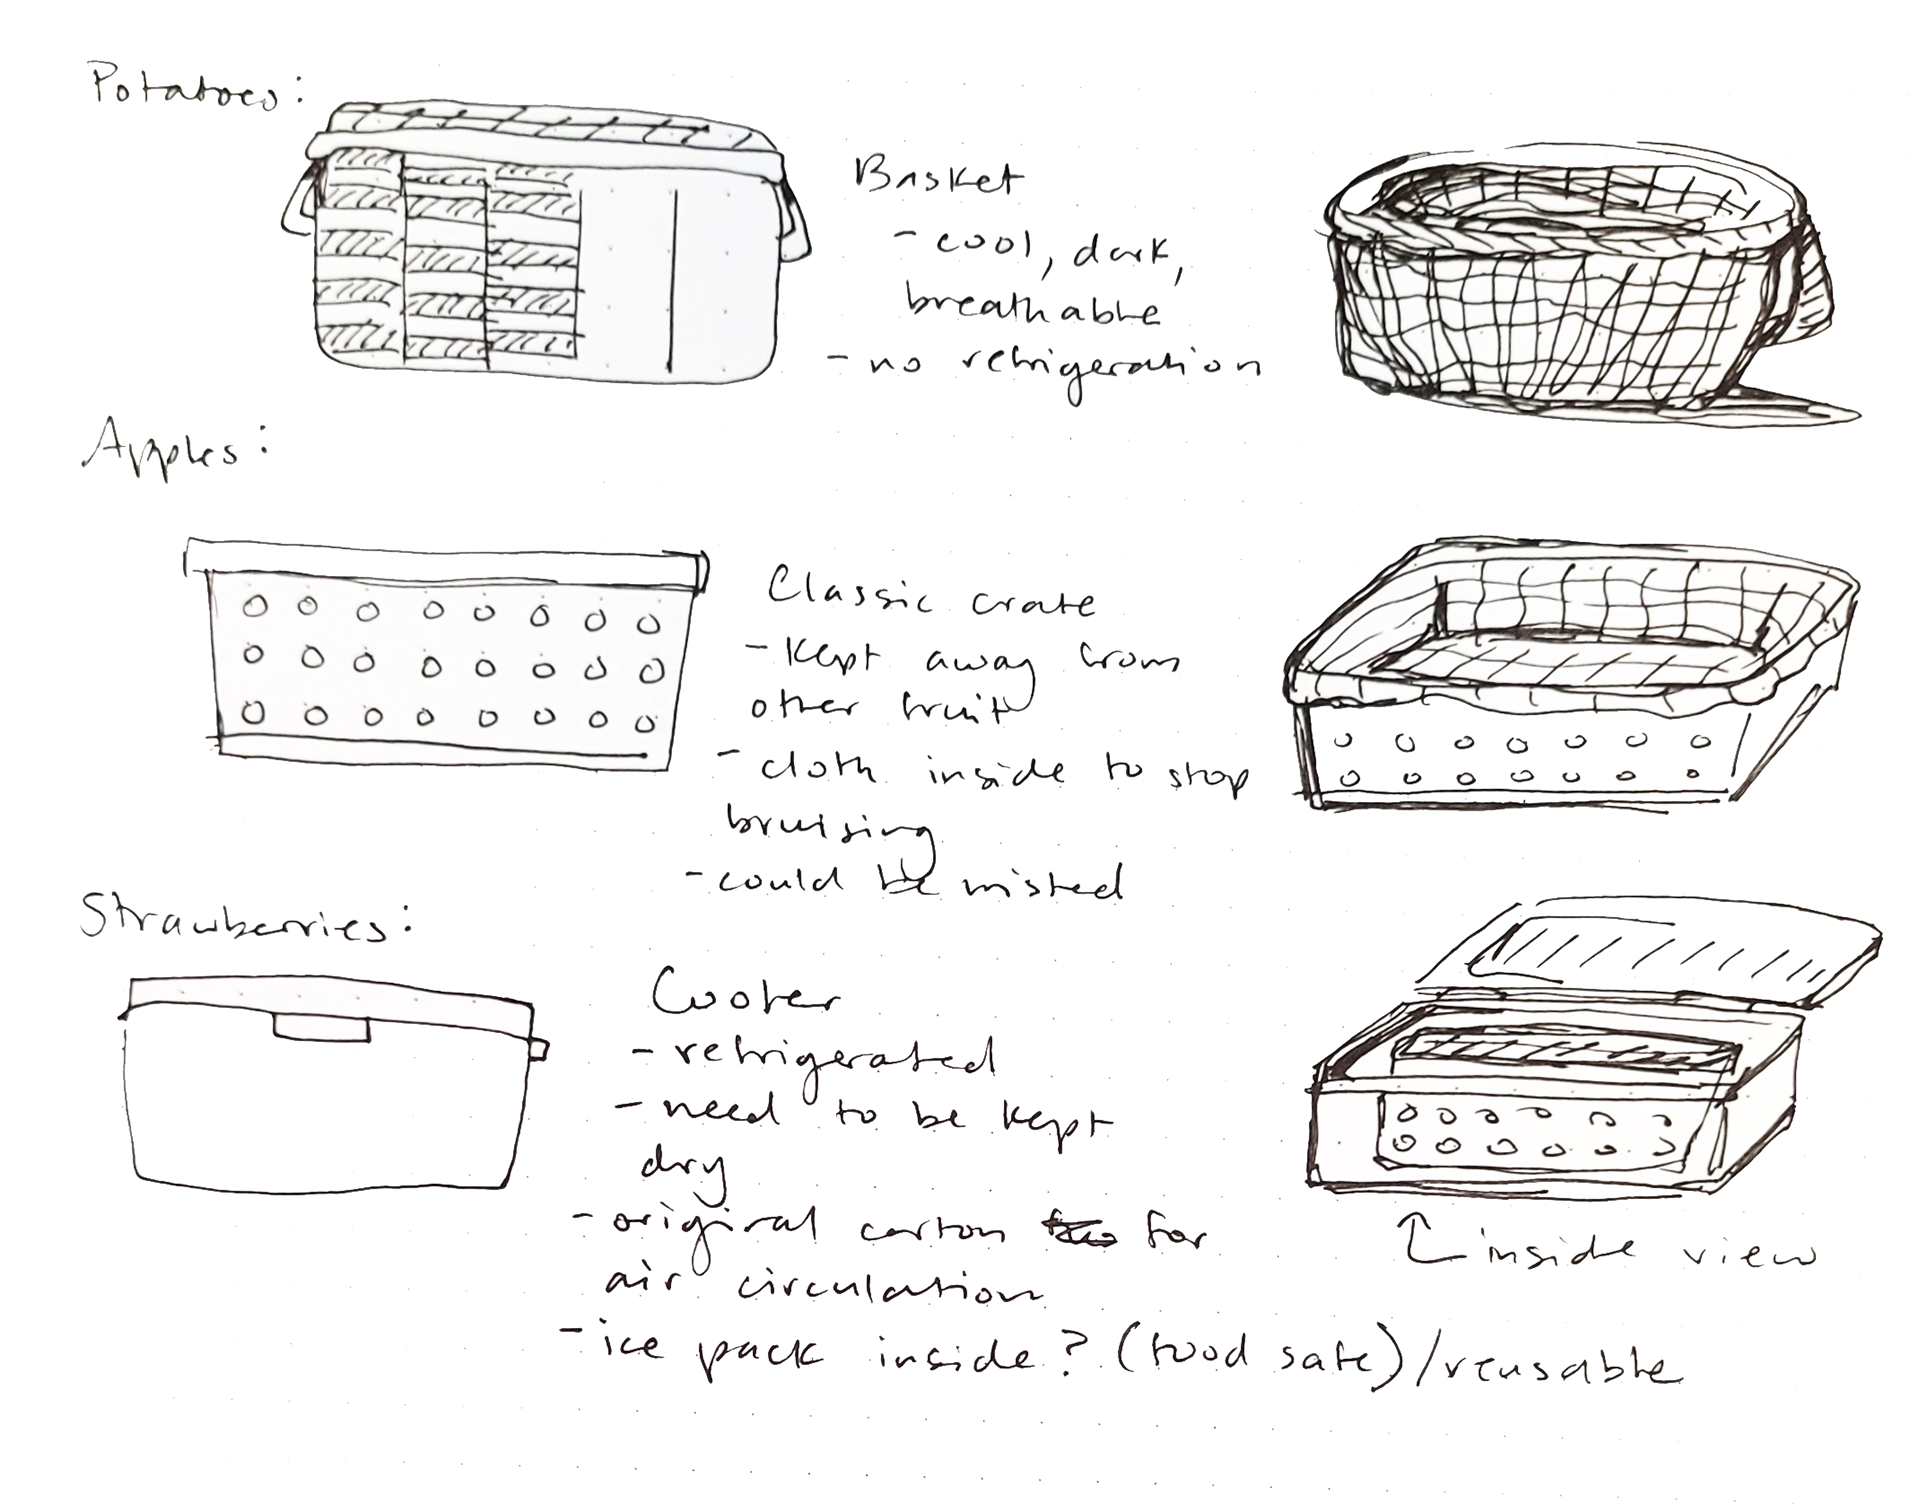 Potatoes:
Basket
- cool, dark,
breathable
- no refrigeration
Apples:
Classic crate
- kept away from
other fruit
- cloth inside to stop
bruising
- could be misted
Strawberries:
Cooler
- refrigerated
- need to be kept
dry
- original carton for
air circulation
- ice pack inside? (food safe)/reusable
inside view